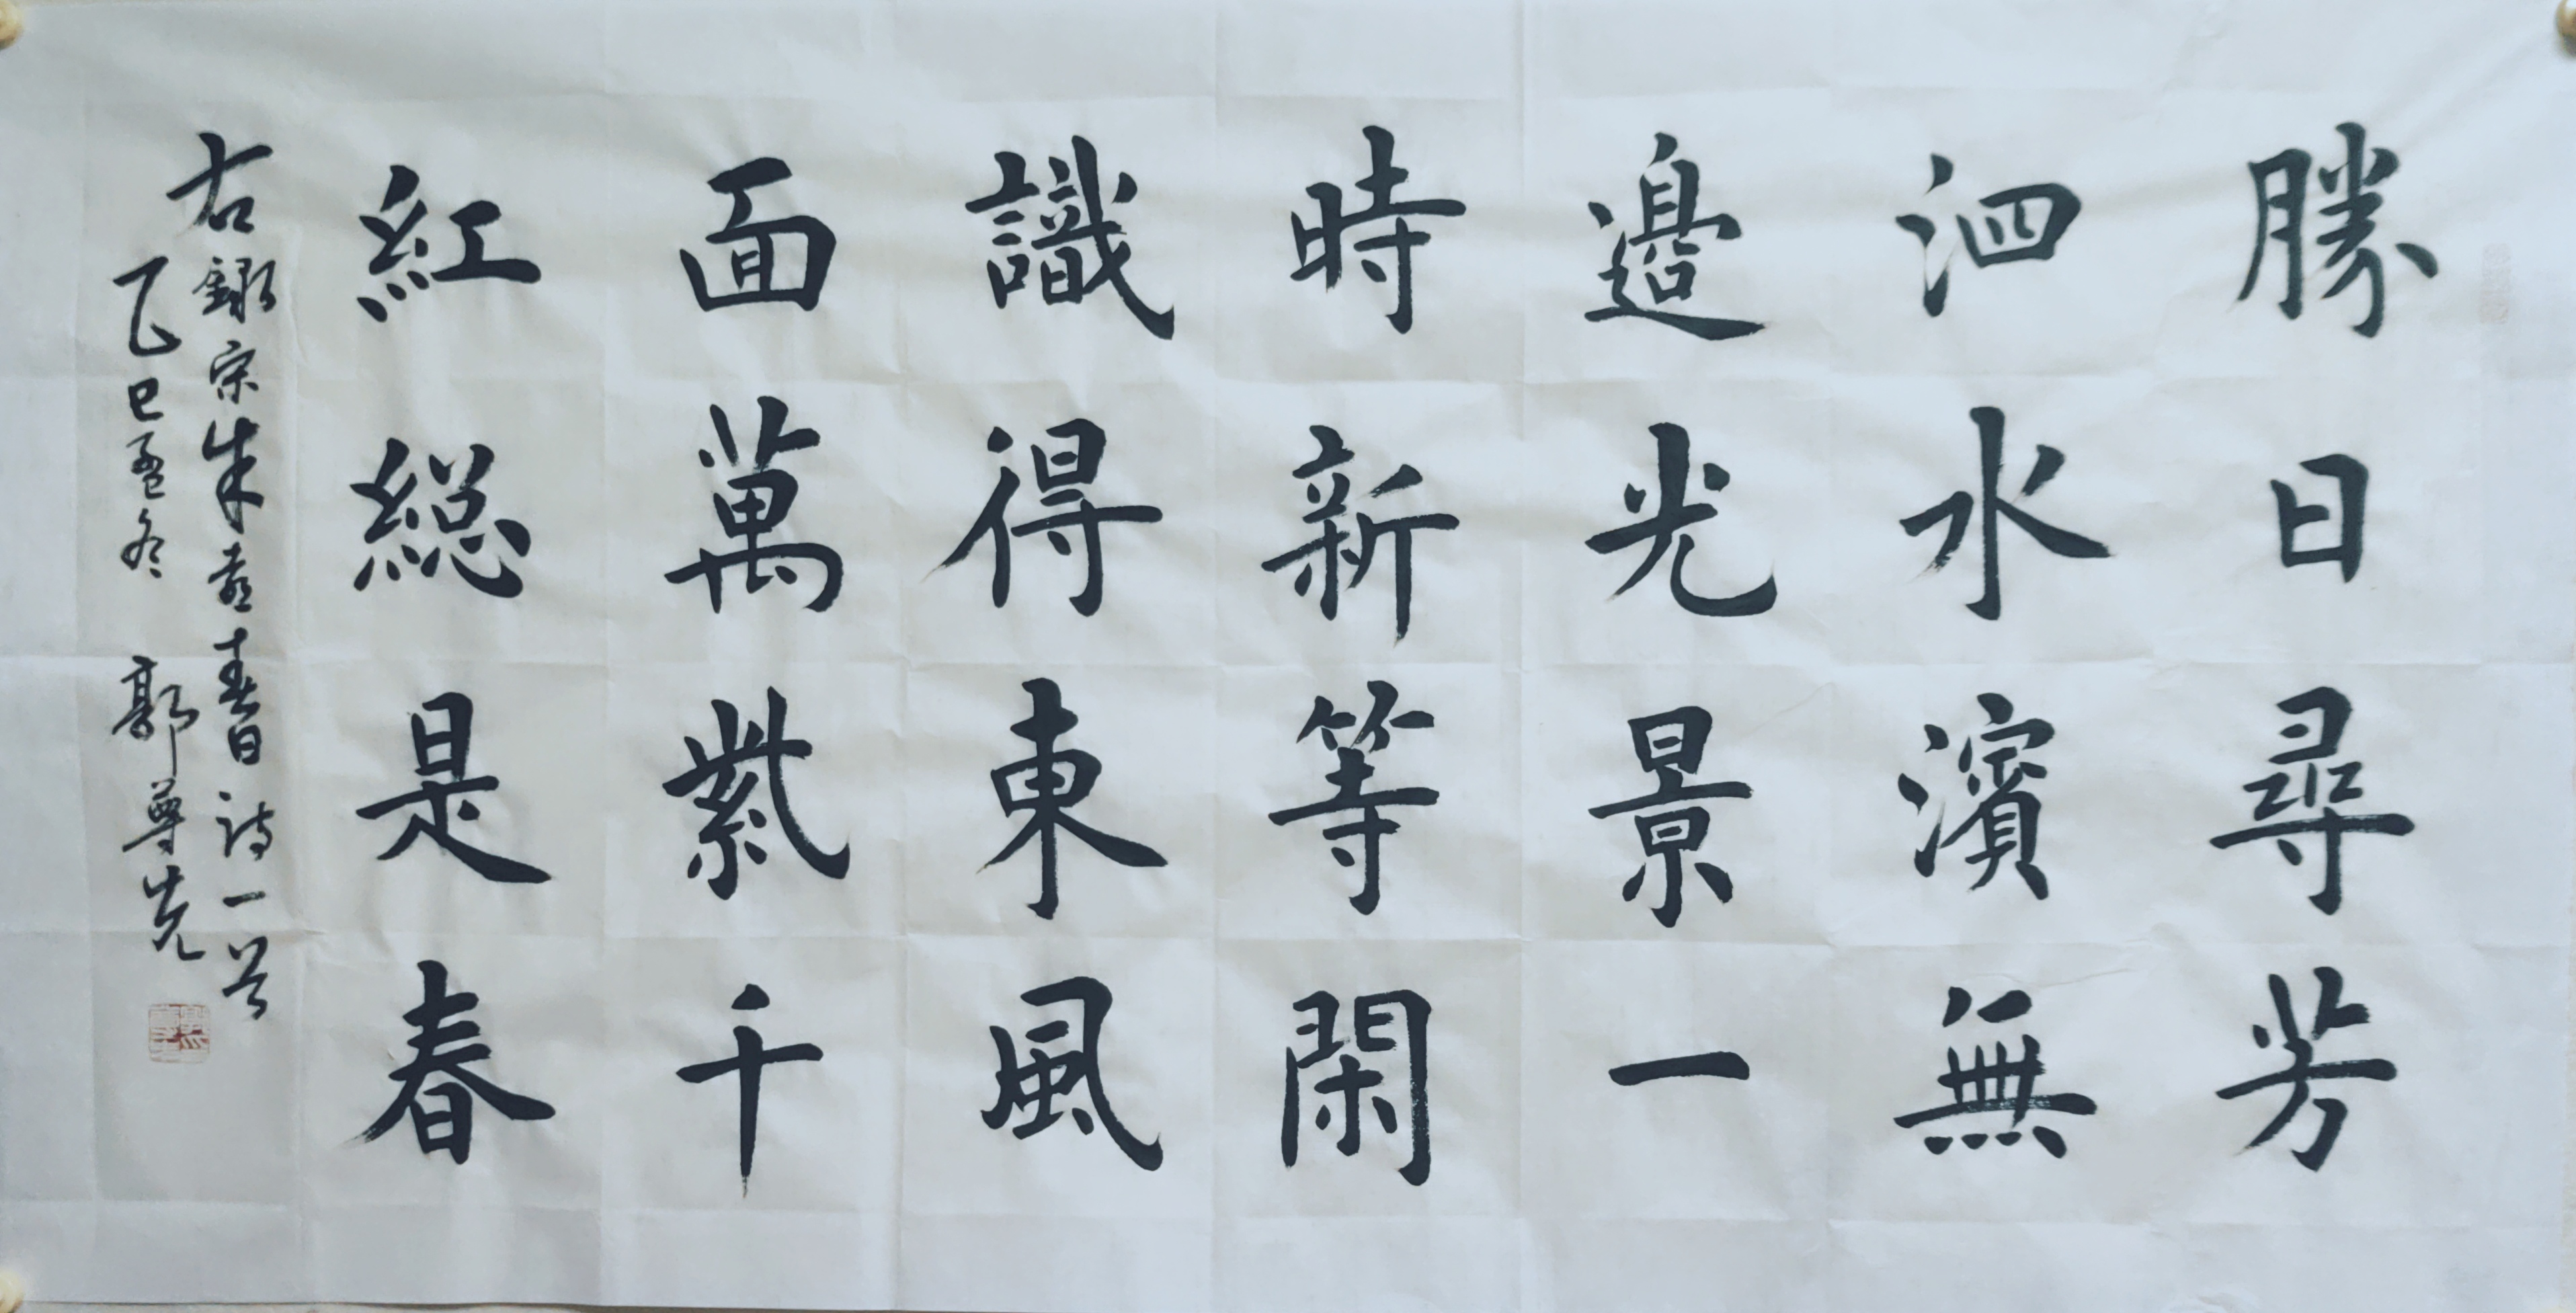 勝日尋芳
泗水濱無
邊光景一
時新等閑
識得東風
面萬紫千
紅総是春
右録宋朱熹春日詩一首
乙巳孟冬 郭尊先